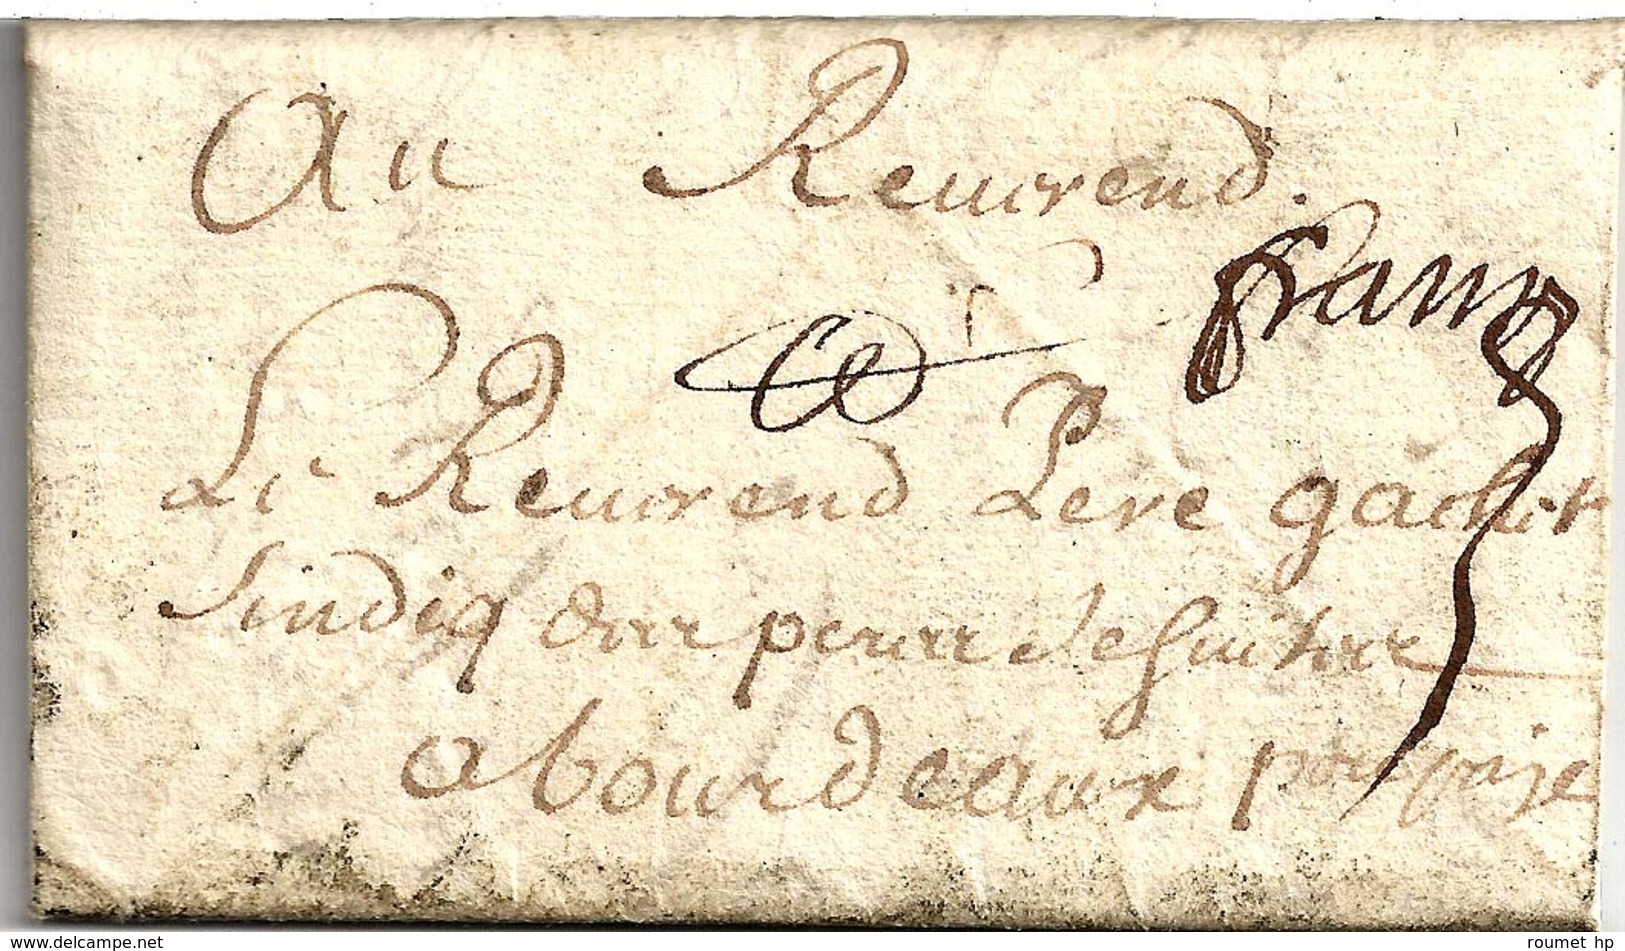 Au Reuerend.
franq
Le Reuerend Pere gachet
sindiq des peres Jesuittes
a bourdeaux
© www.delcampe.net
roumet hp